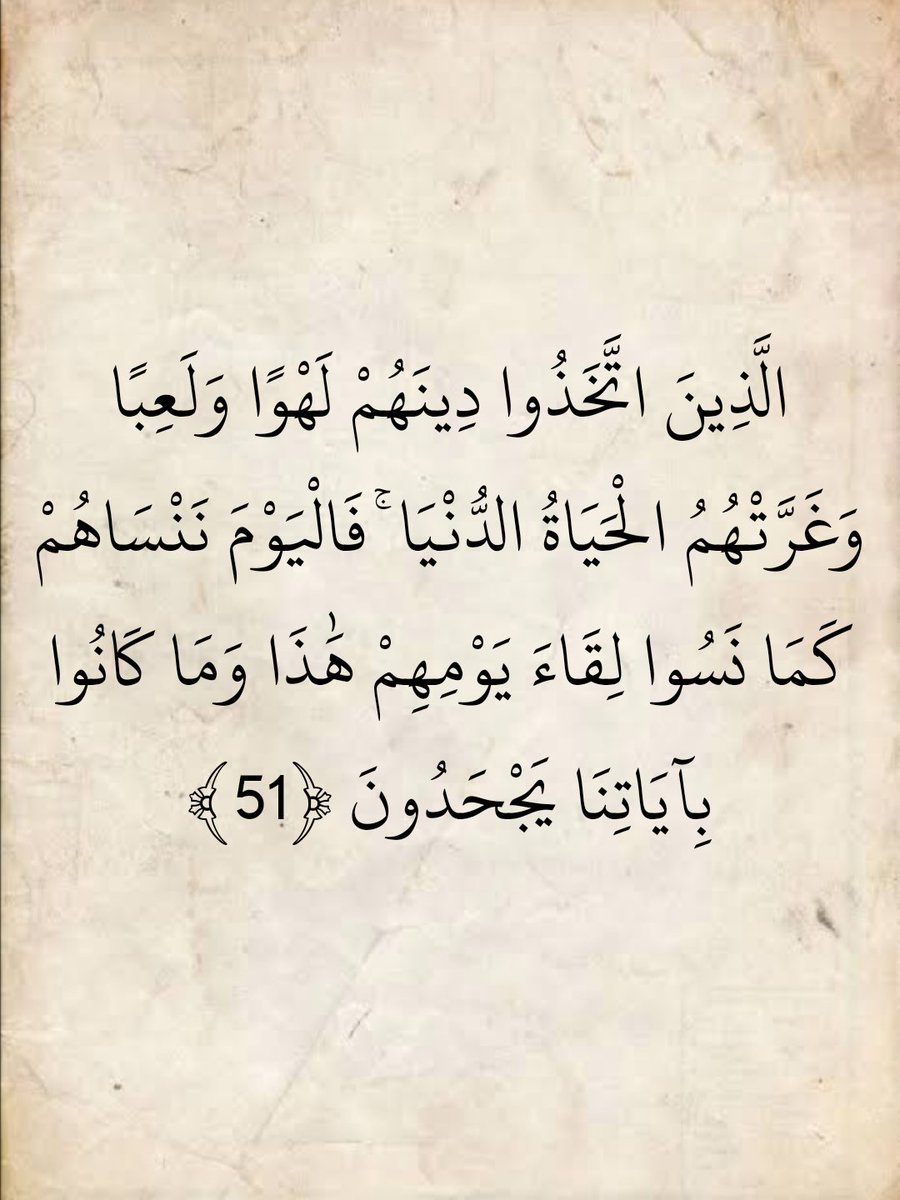 الَّذِينَ اتَّخَذُوا دِينَهُمْ لَهْوًا وَلَعِبًا
وَغَرَّتْهُمُ الْحَيَاةُ الدُّنْيَا ۚ فَالْيَوْمَ نَنْسَاهُمْ
كَمَا نَسُوا لِقَاءَ يَوْمِهِمْ هَٰذَا وَمَا كَانُوا
بِآيَاتِنَا يَجْحَدُونَ ﴿51﴾